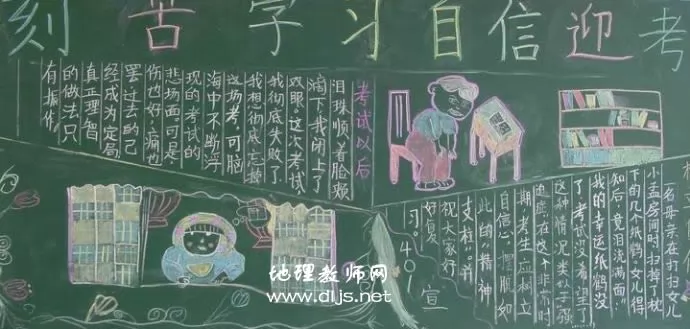 刻苦学习自信迎考
考试以后
泪珠顺着脸颊
滴下,我闭上了
双眼,这次考试
我彻底失败了,
我想彻底忘掉
这场考,可脑
海中不断浮
现的考试的
悲场面可是
伤也好,痛也
罢过去的已
经成为定局
真正理智
的做法只
有振作
一名母亲在打扫女儿
小孟房间时扫掉了枕
下的几个纸鹤,女儿得
知后,竟泪流满面"
我的幸运纸鹤没
了,考试没希望了
这种情况类似于强
迫症,在这个非常时
期,考生应树立
自信心,摆脱如
此的"精神
支柱",并
祝大家好
好复
习。401
宣
地理教师网
www.dljs.net